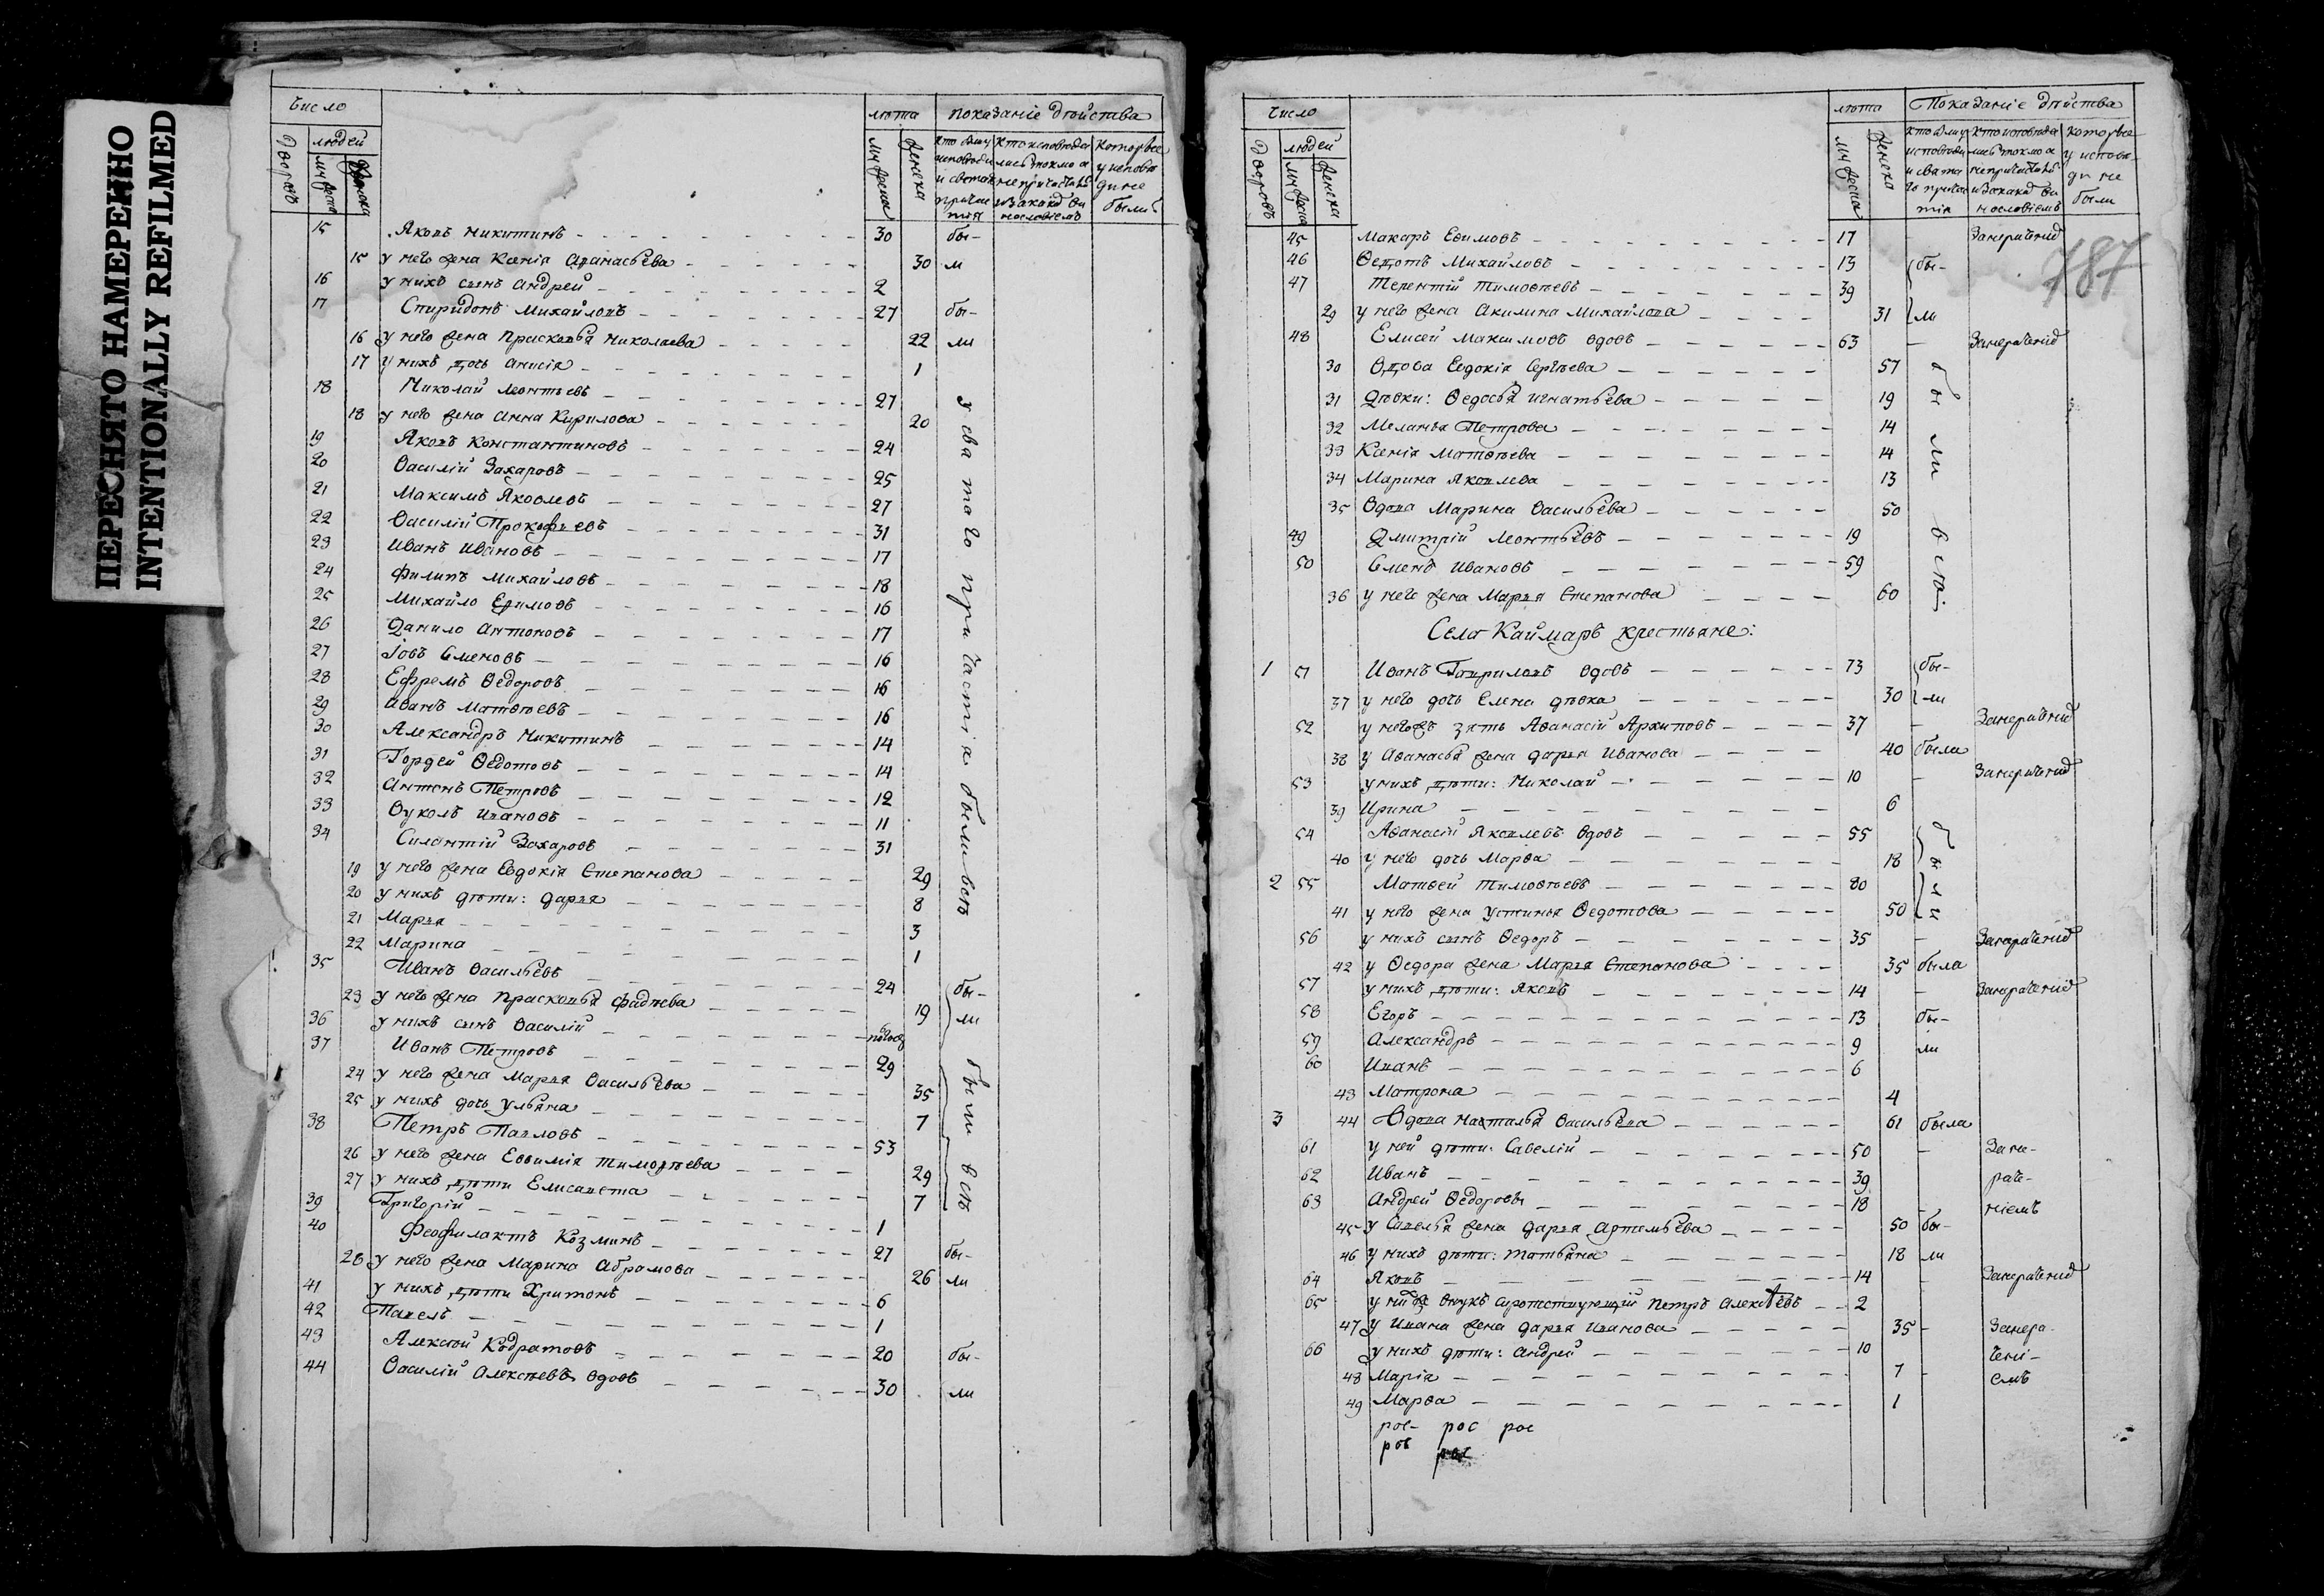 ПЕРЕСНЯТО НАМЕРЕННО
INTENTIONALLY REFILMED
Число лѣта показаніе дѣйства
дворовъ людей мужеска женска
мужеска женска
кто были исповѣди и святаго причастія
кто исповѣдались токмо а не причастились и за какой виною
которые у исповѣди не были
15 Яковъ Никитинъ 30 бы-
15 у него жена Ксенія Аѳанасьева 30 ли
16 у нихъ сынъ Андрей 2
17 Спиридонъ Михайловъ 27 бы-
16 у него жена Прасковья Николаева 22 ли
17 у нихъ дочь Анисія 1
18 Николай Леонтьевъ 27
18 у него жена Анна Кирилова 20
19 Яковъ Константиновъ 24
20 Василій Захаровъ 25
21 Максимъ Яковлевъ 27
22 Василій Прокофьевъ 31
23 Иванъ Ивановъ 17
24 Филипъ Михайловъ 18
25 Михайло Ефимовъ 16
26 Данило Антоновъ 17
27 Іовъ Семеновъ 16
28 Ефремъ Ѳедоровъ 16
29 Иванъ Матвѣевъ 16
30 Александръ Никитинъ 14
31 Гордей Ѳедотовъ 14
32 Антонъ Петровъ 12
33 Вуколъ Ивановъ 11
34 Силантій Захаровъ 31
19 у него жена Евдокія Степанова 29
20 у нихъ дѣти: Дарья 8
21 Марья 3
22 Марина 1
у святаго причастія были всѣ
35 Иванъ Васильевъ 24 бы-
23 у него жена Прасковья Фадѣева 19 ли
36 у нихъ сынъ Василій
37 Иванъ Петровъ 29
24 у него жена Марья Васильева 35
25 у нихъ дочь Ульяна 7
38 Петръ Павловъ 53
26 у него жена Евѳимія Тимоѳѣева 29
27 у нихъ дѣти Елисавета 7
были всѣ
39 Григорій 1
40 Феофилактъ Козминъ 27 бы-
28 у него жена Марина Абрамова 26 ли
41 у нихъ дѣти Харитонъ 6
42 Павелъ 1
43 Алексѣй Кодратовъ 20 бы-
44 Василій Алексѣевъ вдовъ 30 ли
Число лѣта Показаніе дѣйства
дворовъ людей мужеска женска
мужеска женска
кто были исповѣди и святаго причастія
кто исповѣдались токмо а не причастились и за какой виною
которые у исповѣди не были
787
45 Макаръ Ефимовъ 17 Занерачені
46 Ѳедотъ Михайловъ 13 бы-
47 Терентій Тимоѳѣевъ 39
29 у него жена Акилина Михайлова 31 ли
48 Елисей Максимовъ вдовъ 63 - Занерачені
30 Вдова Евдокія Сергѣева 57
31 Дѣвки: Ѳедосья Игнатьева 19
32 Меланья Петрова 14
33 Ксенія Матвѣева 14
34 Марина Яковлева 13
35 Вдова Марина Васильева 50
49 Дмитрій Леонтьевъ 19
50 Семенъ Ивановъ 59
36 у него жена Марья Степанова 60
были всѣ
Села Каймаръ крестьяне:
1 51 Иванъ Гавриловъ вдовъ 73 бы-
37 у него дочь Елена дѣвка 30 ли
52 у него жъ зять Аѳанасій Архиповъ 37 - Занерачені
38 у Аѳанасья жена Дарья Иванова 40 была
53 у нихъ дѣти: Николай 10 - Занерачені
39 Ирина 6
54 Аѳанасій Яковлевъ вдовъ 55
40 у него дочь Марѳа 18
2 55 Матвей Тимоѳѣевъ 80
41 у него жена Устинья Ѳедотова 50
были
56 у нихъ сынъ Ѳедоръ 35 - Занерачені
42 у Ѳедора жена Марья Степанова 35 была
57 у нихъ дѣти: Яковъ 14 - Занерачені
58 Егоръ 13 бы-
59 Александръ 9 ли
60 Иванъ 6
43 Матрона 4
3 44 Вдова Наталья Васильева 61 была
61 у ней дѣти: Савелій 50 - Зане-
62 Иванъ 39 раче-
63 Андрей Ѳедоровы 18 - ніемъ
45 у Савелья жена Дарья Артемьева 50 бы-
46 у нихъ дѣти: Татьяна 18 ли
64 Яковъ 14 - Занерачені
65 у нихъ же внукъ сиротствующій Петръ Алексѣевъ 2
47 у Ивана жена Дарья Иванова 35 - Занера-
66 у нихъ дѣти: Андрей 10 чені-
48 Марія 7 - емъ
49 Марѳа 1
рос- рос рос
рос